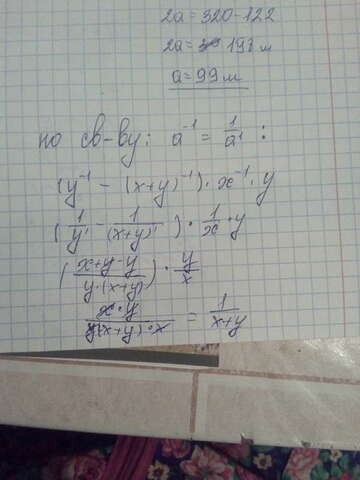 2a = 320 - 122
2a = 198 м
a = 99 м
по св-ву: a^-1 = 1/a^1 :
(y^-1 - (x+y)^-1) · x^-1 · y
(1/y^1 - 1/(x+y)^1) · 1/x · y
((x+y-y)/(y·(x+y))) · y/x
(x·y)/(y(x+y)·x) = 1/(x+y)